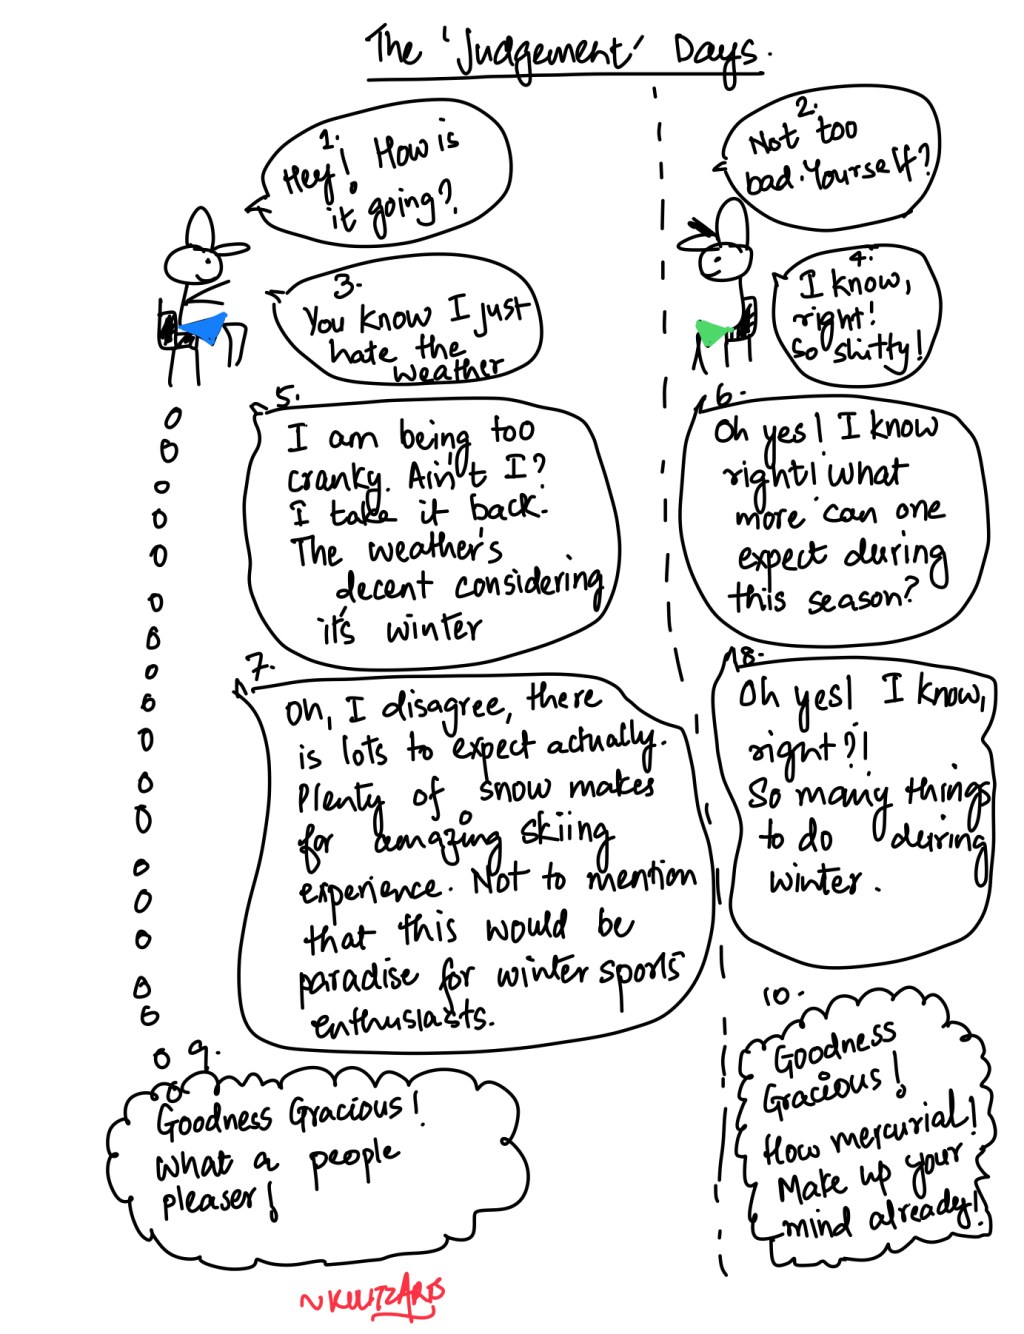 The 'Judgement' Days.
1.
Hey! How is
it going?
2.
Not too
bad. Yourself?
3.
You know I just
hate the
weather
4.
I know,
right!
So shitty!
5.
I am being too
cranky. Ain't I?
I take it back.
The weather's
decent considering
it's winter
6.
Oh yes! I know
right! what
more can one
expect during
this season?
7.
Oh, I disagree, there
is lots to expect actually.
Plenty of snow makes
for amazing skiing
experience. Not to mention
that this would be
paradise for winter sports
enthusiasts.
8.
Oh yes! I know,
right?!
So many things
to do during
winter.
9.
Goodness Gracious!
What a people
pleaser!
10.
Goodness
Gracious!
How mercurial!
Make up your
mind already!